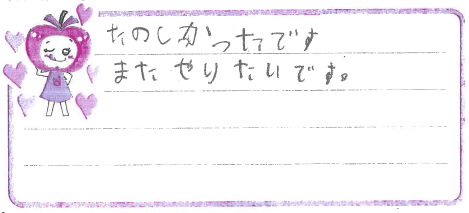 たのしかったです
またやりたいです。